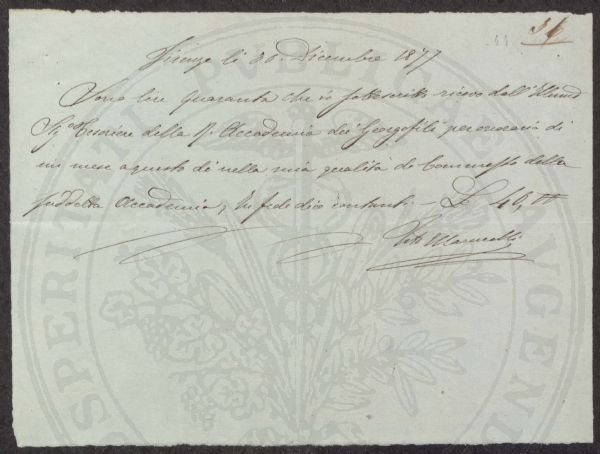 36
Firenze li 30. Dicembre 1877
Sono lire quaranta che io sottoscritto ricevo dall' Illmo
Sigr. Tesoriere della R. Accademia dei Georgofili per onorario di
un mese a questo dì nella mia qualità di Commesso della
suddetta Accademia, In fede dico contanti - L 40,00
Marucelli
PROSPERITATI PUBLICAE AUGENDAE